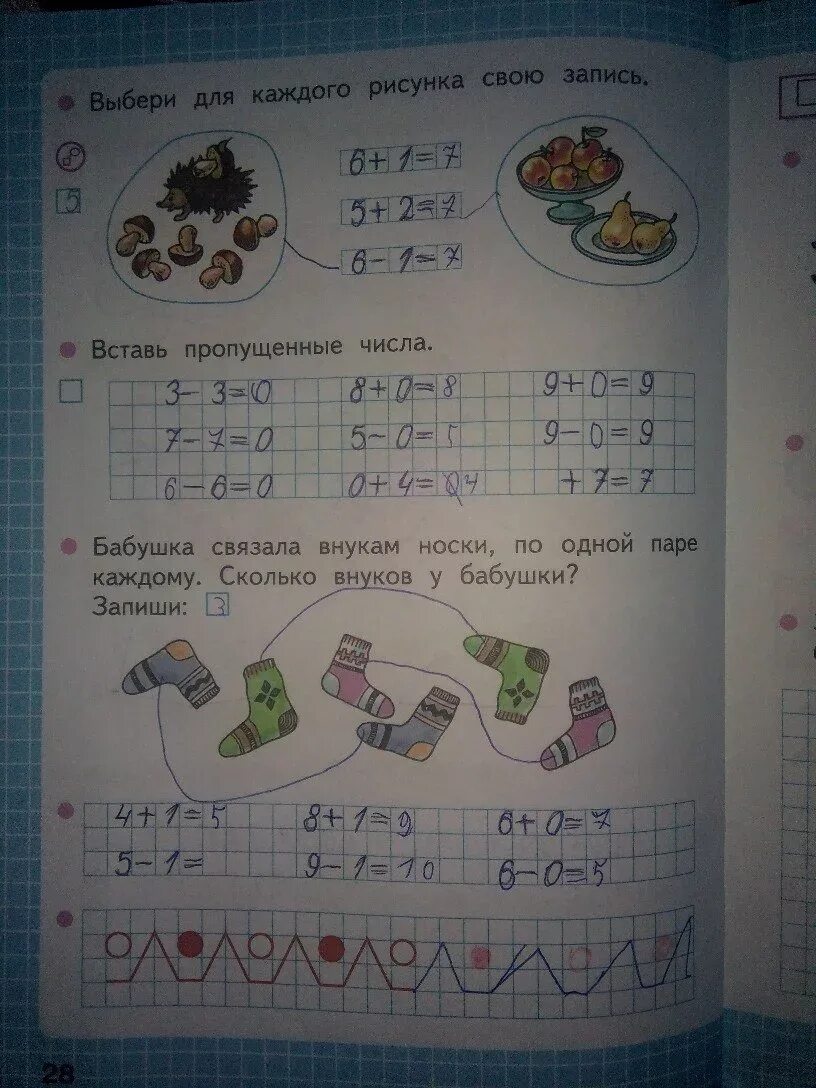 Выбери для каждого рисунка свою запись.
6+1=7
5
5+2=7
6-1=7
Вставь пропущенные числа.
3-3=0 8+0=8 9+0=9
7-7=0 5-0=5 9-0=9
6-6=0 0+4=04 +7=7
Бабушка связала внукам носки, по одной паре
каждому. Сколько внуков у бабушки?
Запиши: 3
4+1=5 8+1=9 6+0=7
5-1= 9-1=10 6-0=5
28